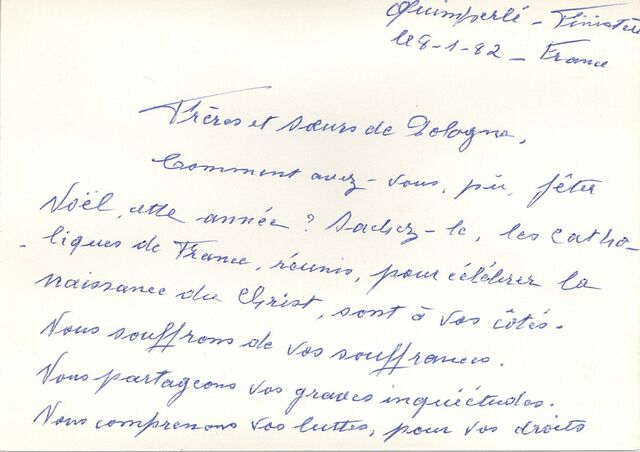 Quimperlé - Finistère
le 8-1-82 - France
Frères et sœurs de Pologne,
Comment avez-vous, pû, fêter
Noël, cette année ? Sachez-le, les catho-
- liques de France, réunis, pour célébrer la
naissance du Christ, sont à vos côtés.
Nous souffrons de vos souffrances.
Nous partageons vos graves inquiétudes.
Nous comprenons vos luttes, pour vos droits